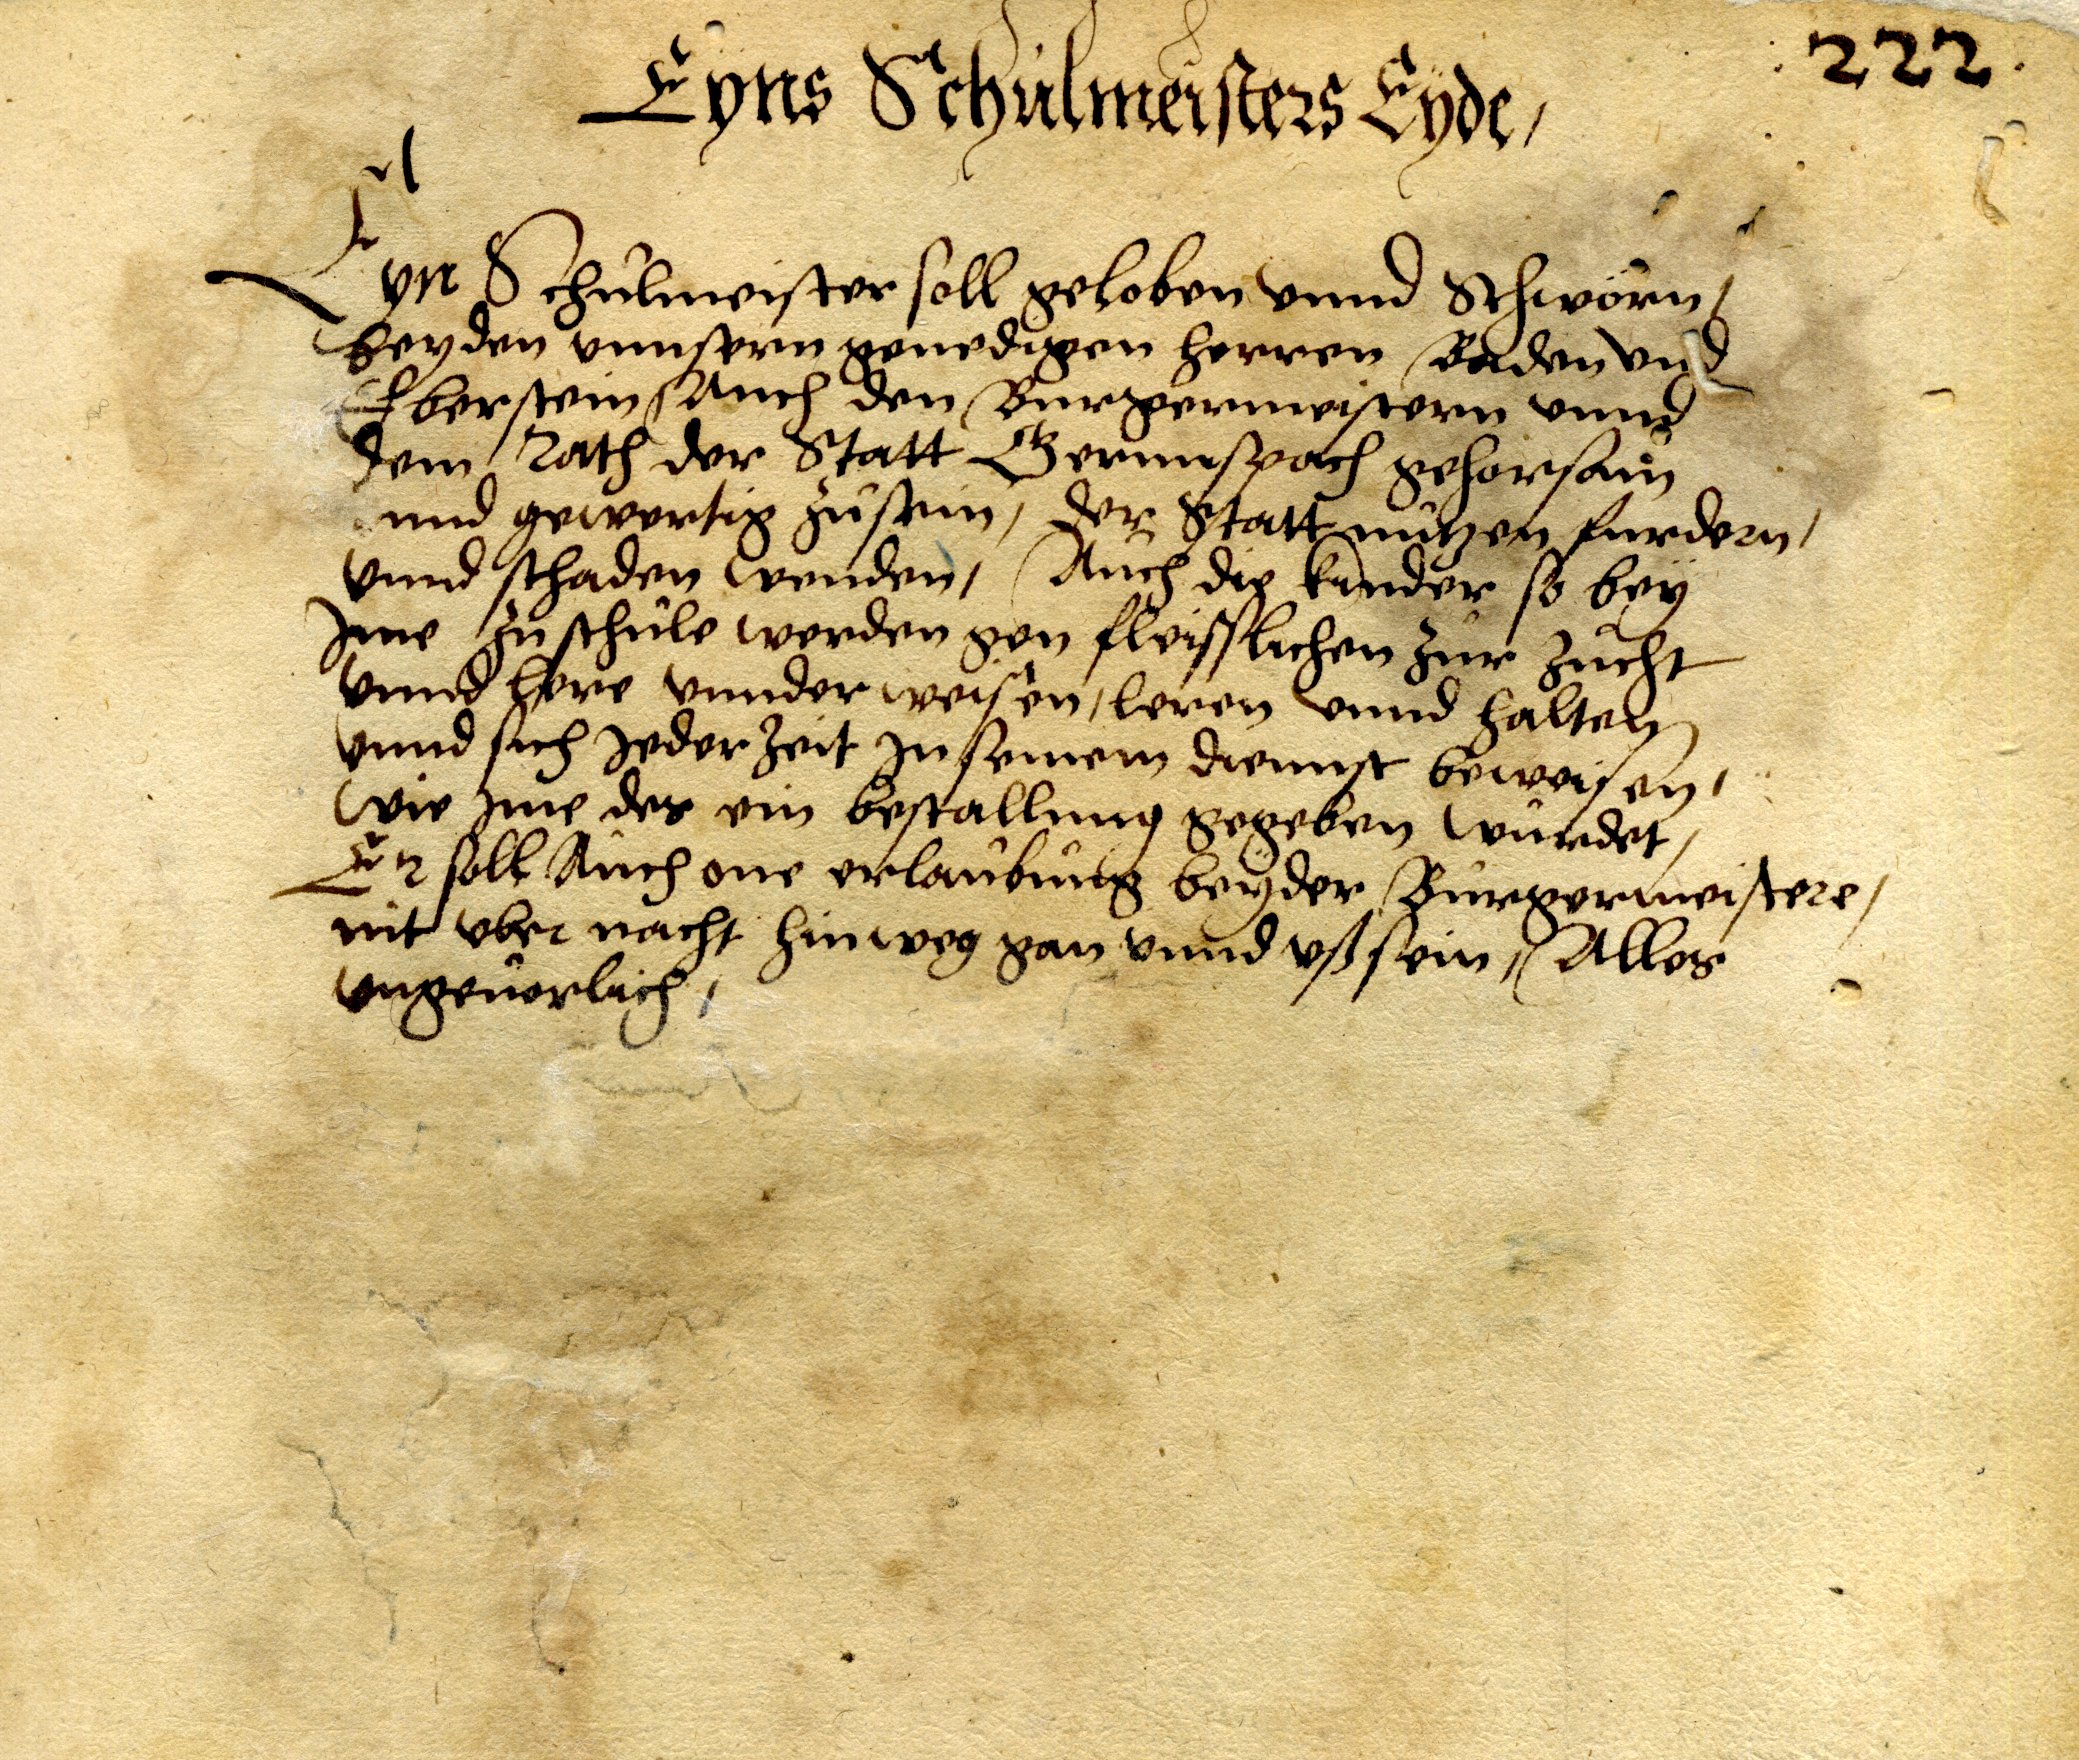 222.
Eyns Schulmeisters Eyde,
Eyn Schulmeister soll geloben vnnd Schwörn,
beyden vnnsern genedigen herren Baden vnd
Eberstein, Auch den Burgermeistern vnnd
dem Rath der Statt Gernnspach gehorsam
vnnd gewertig zusein, der Statt nutzen furdern,
vnnd schaden wenden, Auch die kinder so bey
Jme zuschule werden gen fleisslichen zur zucht
vnnd here vnnderweisen, leren vnnd halten
vnnd sich Jederzeit Jn seinem diennst beweisen,
wie Jme des ein bestallung gegeben wurdet,
Er soll Auch one erlaubung beyder Burgermeistere,
nit vber nacht hinweg gan vnnd vß sein, Alles
vngeuerlich,